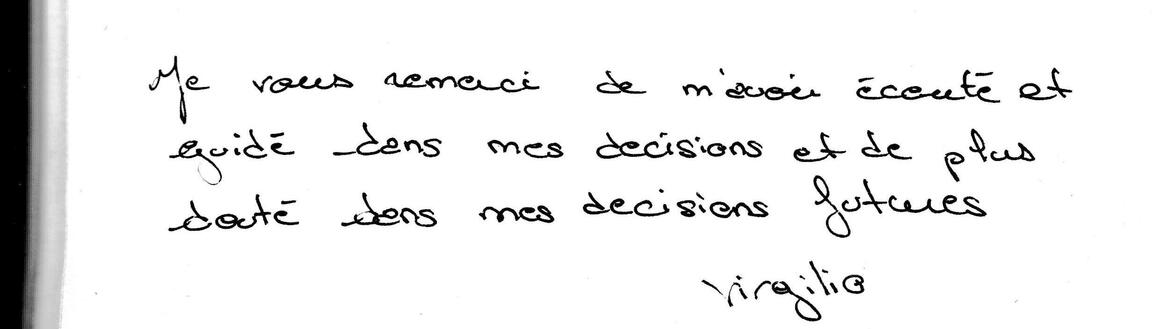 Je vous remerci de m'avoir écouté et
guidé dans mes decisions et de plus
douté dans mes decisions futures
Virgilio